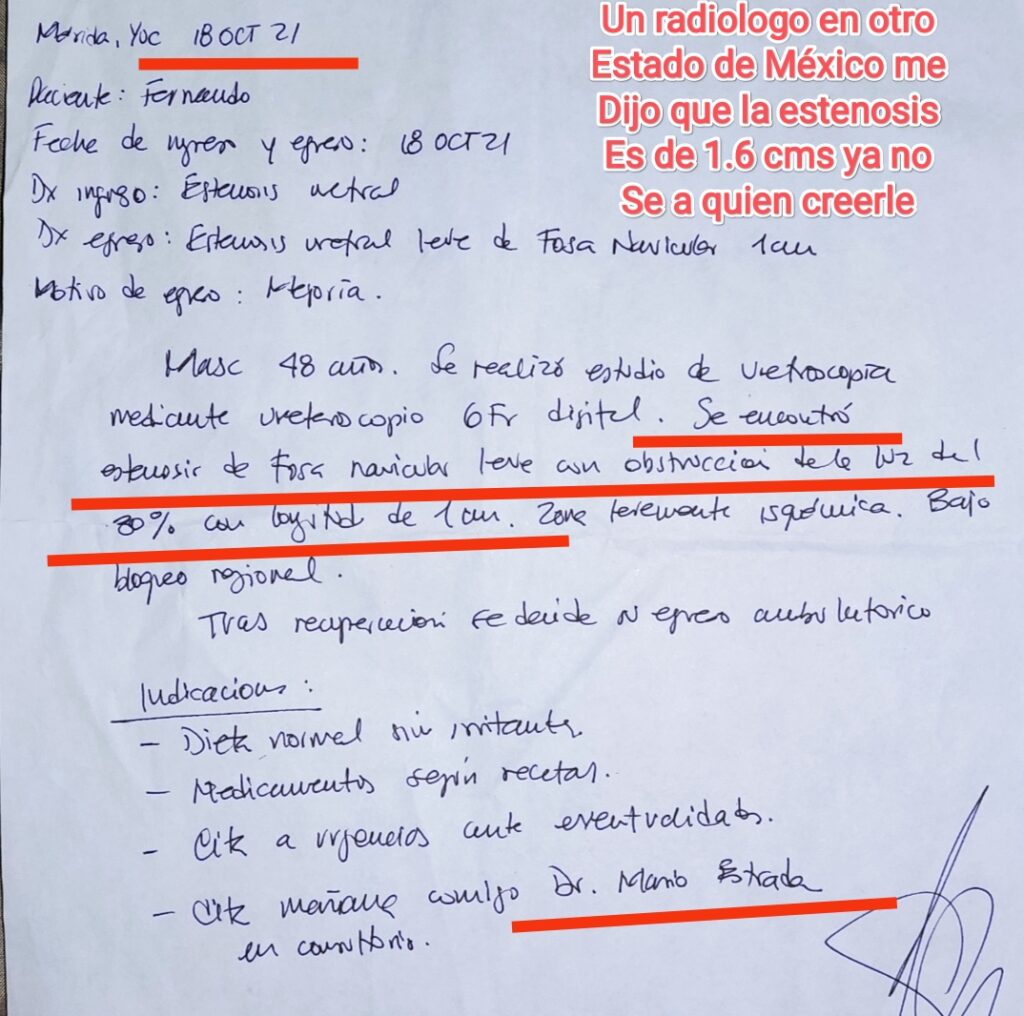 Mérida, Yuc 18 OCT 21
Un radiologo en otro
Estado de México me
Dijo que la estenosis
Es de 1.6 cms ya no
Se a quien creerle
Paciente: Fernando
Feche de ingreso y egreso: 18 OCT 21
Dx ingreso: Estenosis uretral
Dx egreso: Estenosis uretral leve de Fosa Navicular 1cm
Motivo de egreso: Mejoría.
Masc 48 años. Se realizó estudio de uretroscopia
mediante ureteroscopio 6Fr digital. Se encontró
estenosis de Fosa navicular leve con obstruccion de la luz del
30% con longitud de 1cm. Zona levemente isquémica. Bajo
bloqueo regional.
Tras recuperación se decide egreso ambulatorico
Indicaciones:
- Dieta normal sin irritantes.
- Medicamentos según recetas.
- Cita a urgencias ante eventualidades.
- Cita mañana conmigo Dr. Mario Estrada
en consultorio.